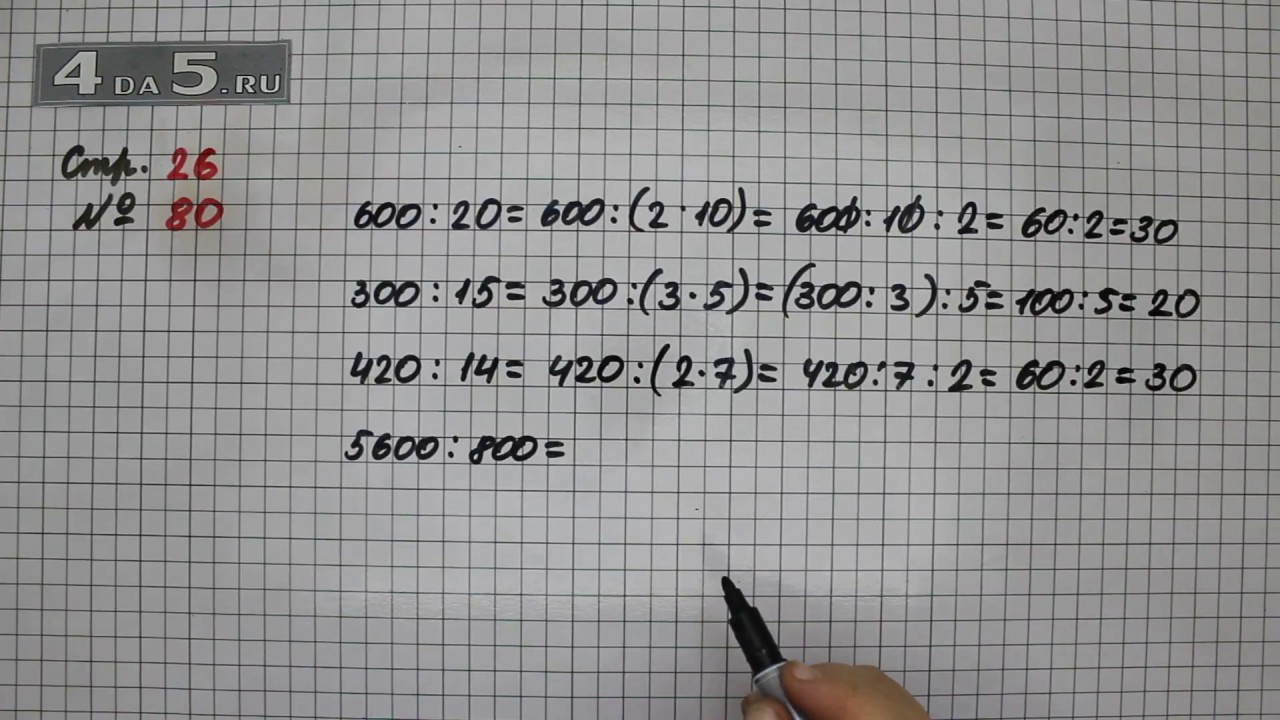 4 DA 5.RU
Стр. 26
№ 80
600 : 20 = 600 : (2 · 10) = 600 : 10 : 2 = 60 : 2 = 30
300 : 15 = 300 : (3 · 5) = (300 : 3) : 5 = 100 : 5 = 20
420 : 14 = 420 : (2 · 7) = 420 : 7 : 2 = 60 : 2 = 30
5600 : 800 =